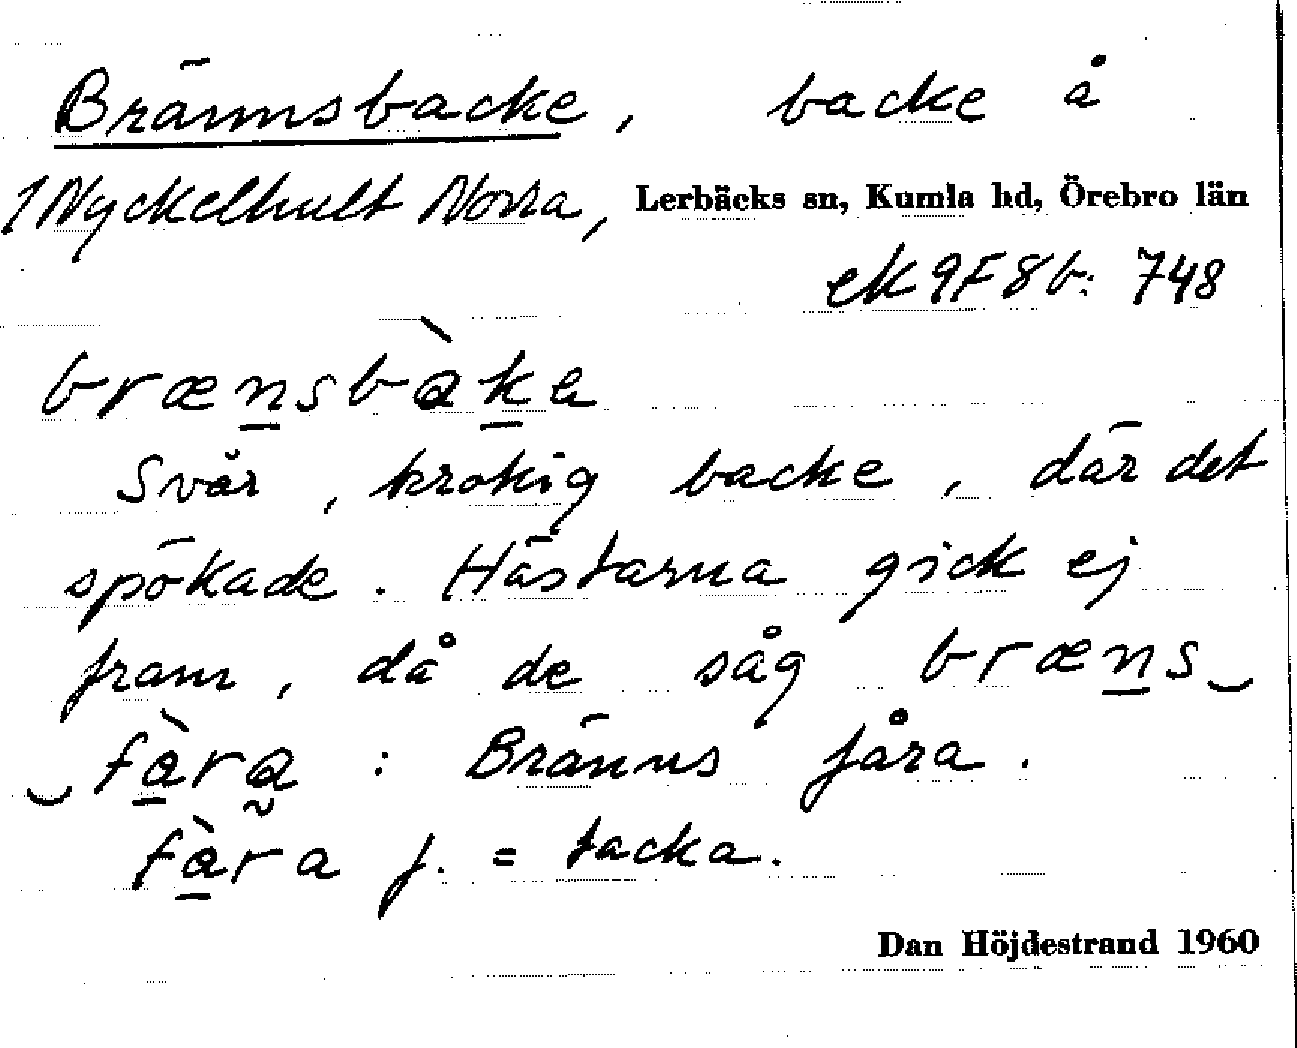 Brännsbacke, backe å
1 Nyckelhult Norra, Lerbäcks sn, Kumla hd, Örebro län
ek 9F8b: 748
brænsbàka
Svår, krokig backe, där det
spökade. Hästarna gick ej
fram, då de såg bræns‿
‿fàra : Bränns fåra.
fàra f. = tacka.
Dan Höjdestrand 1960